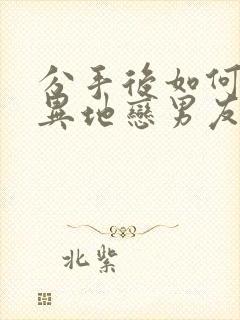 分手後如何
異地戀男友
北紫